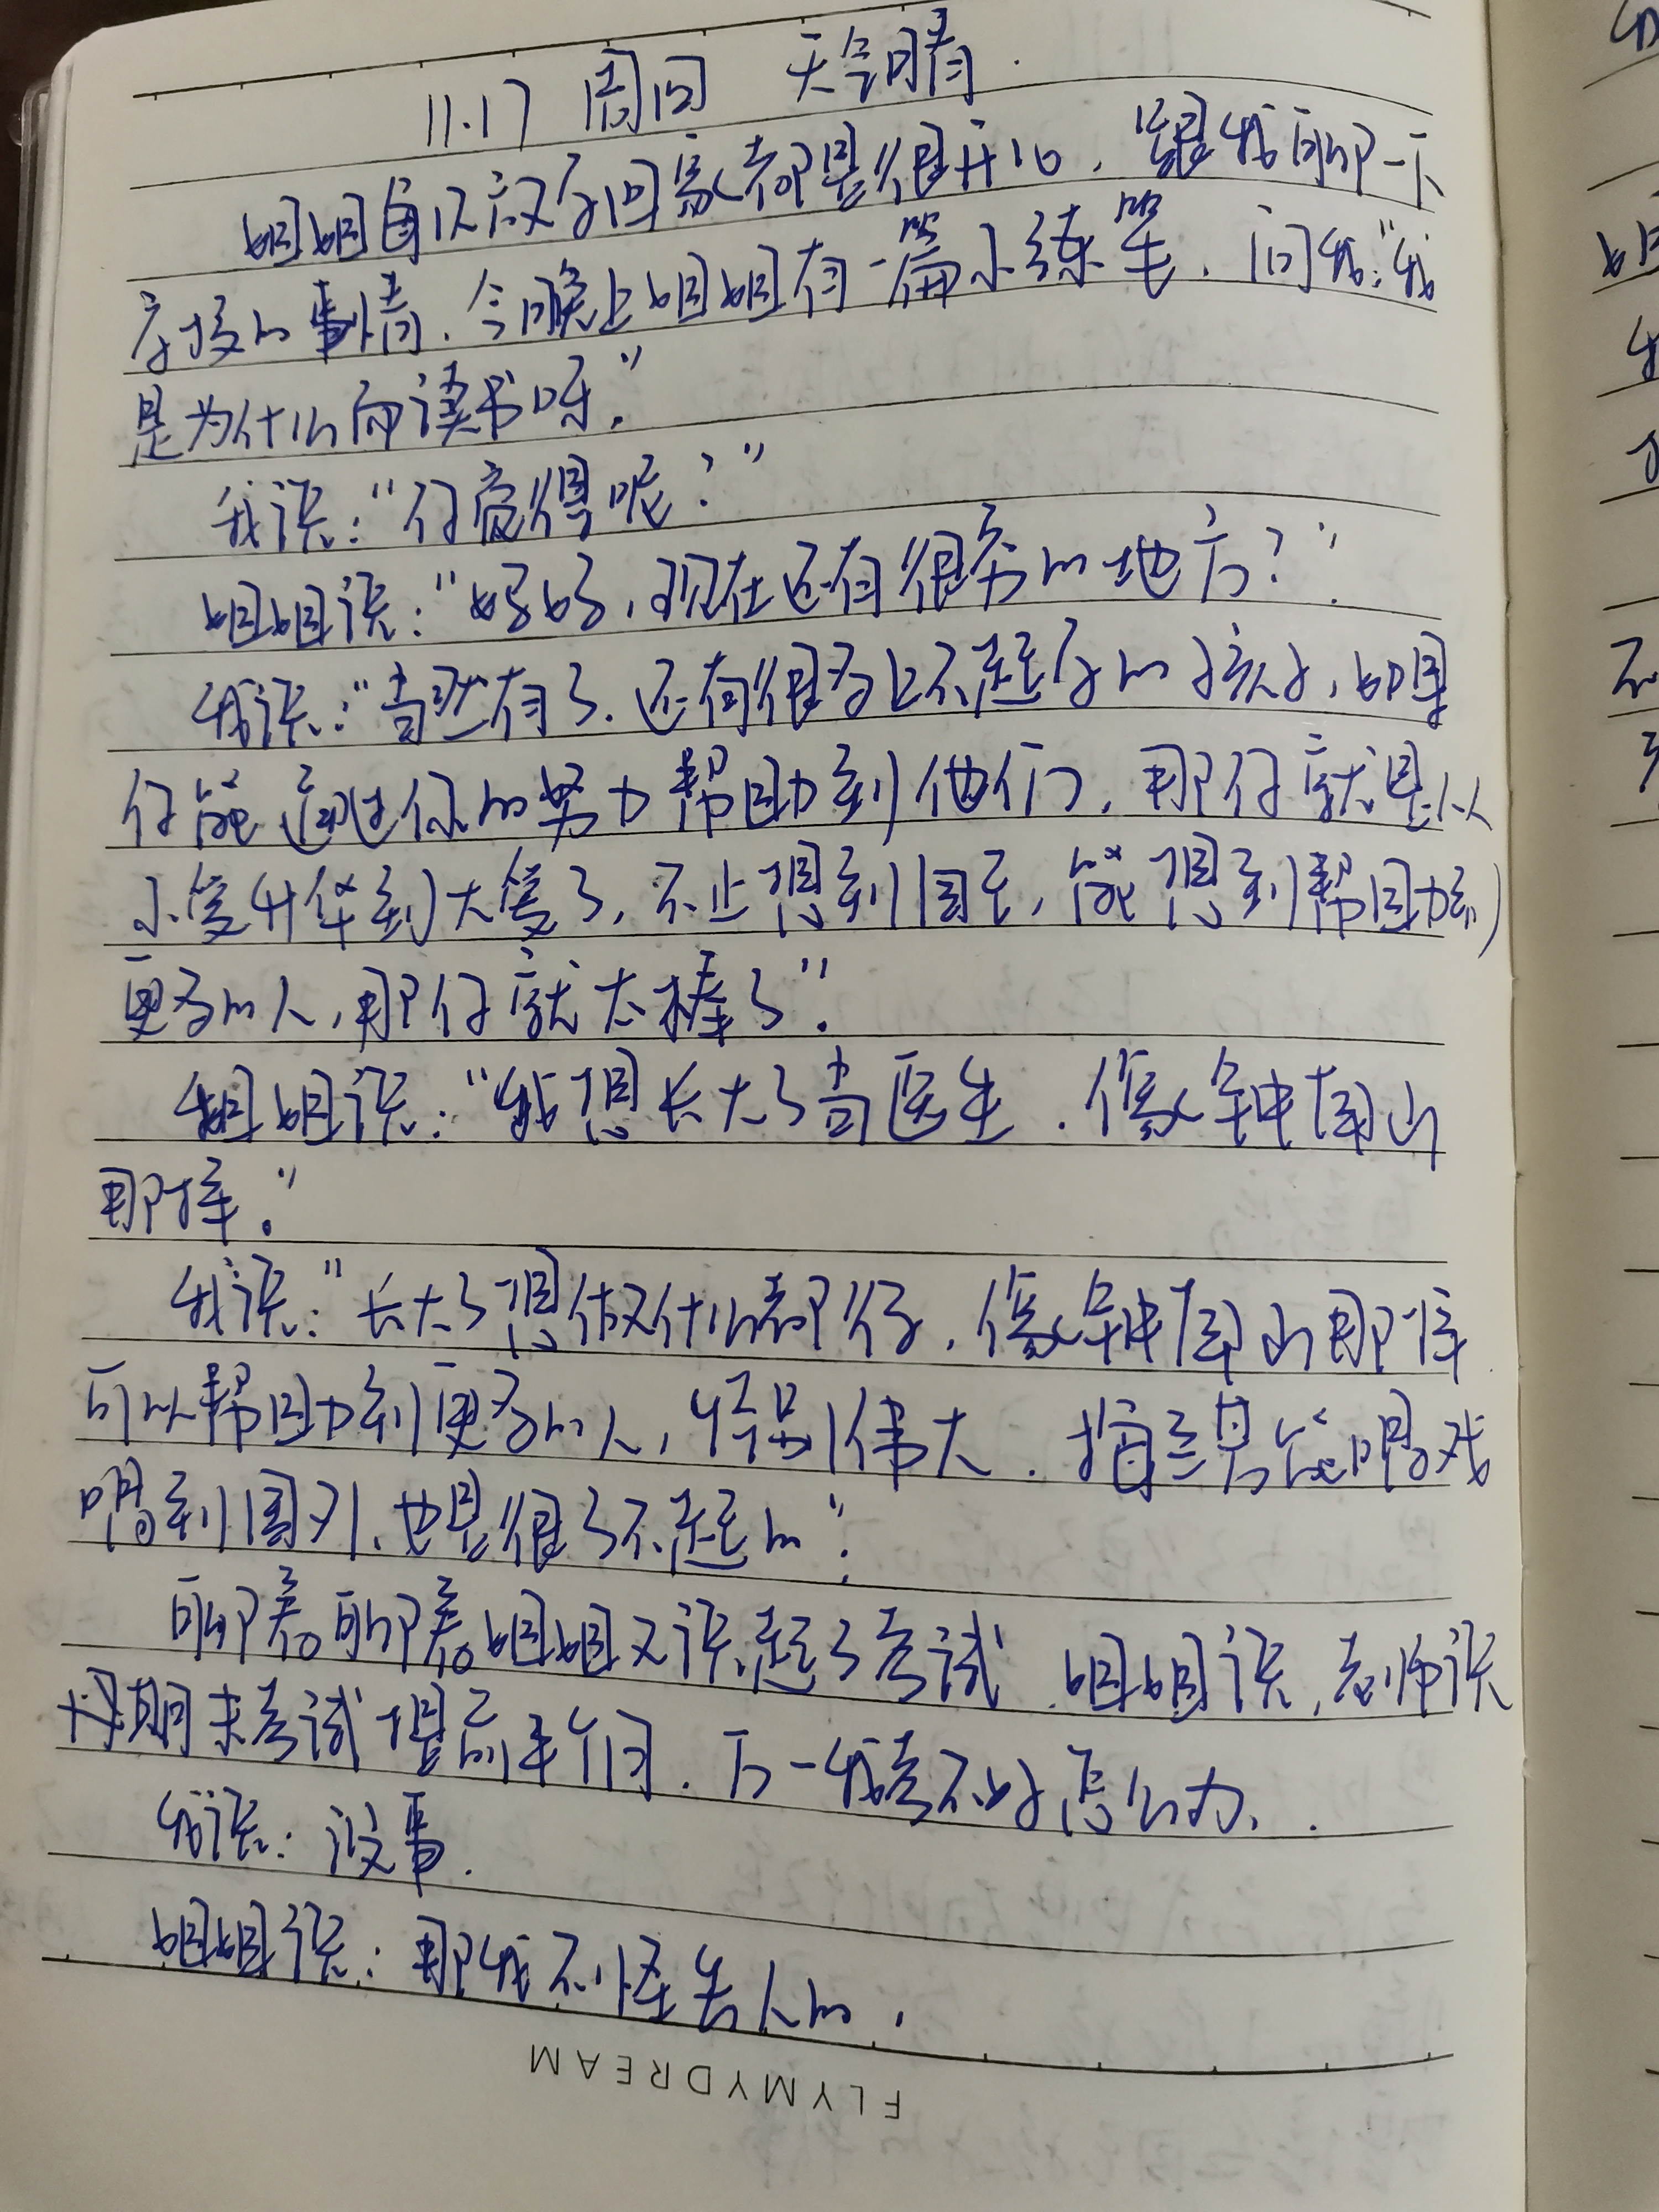 11.17 周四 天气晴.
姐姐每次放学回家都是很开心,跟我聊一下
学校的事情.今晚上姐姐有一篇小练笔.问我:"我
是为什么而读书呀."
我说:"你觉得呢?"
姐姐说:"妈妈,现在还有很穷的地方?"
我说:"当然有了.还有很多上不起学的孩子,如果
你能通过你的努力帮助到他们,那你就是从
小爱升华到大爱了,不止想到国王,能想到帮助到
更多的人,那你就太棒了".
姐姐说:"我想长大了当医生.像钟南山
那样."
我说:"长大了想做什么都行,像钟南山那样
可以帮助到更多的人,特别伟大.指三只能唱戏
唱到国外.也是很了不起的".
聊着聊着姐姐又说起了考试.姐姐说,老师说
期末考试提前半个月.万一我考不好怎么办.
我说:没事.
姐姐说:那我不怪丢人的.
FLYMYDREAM